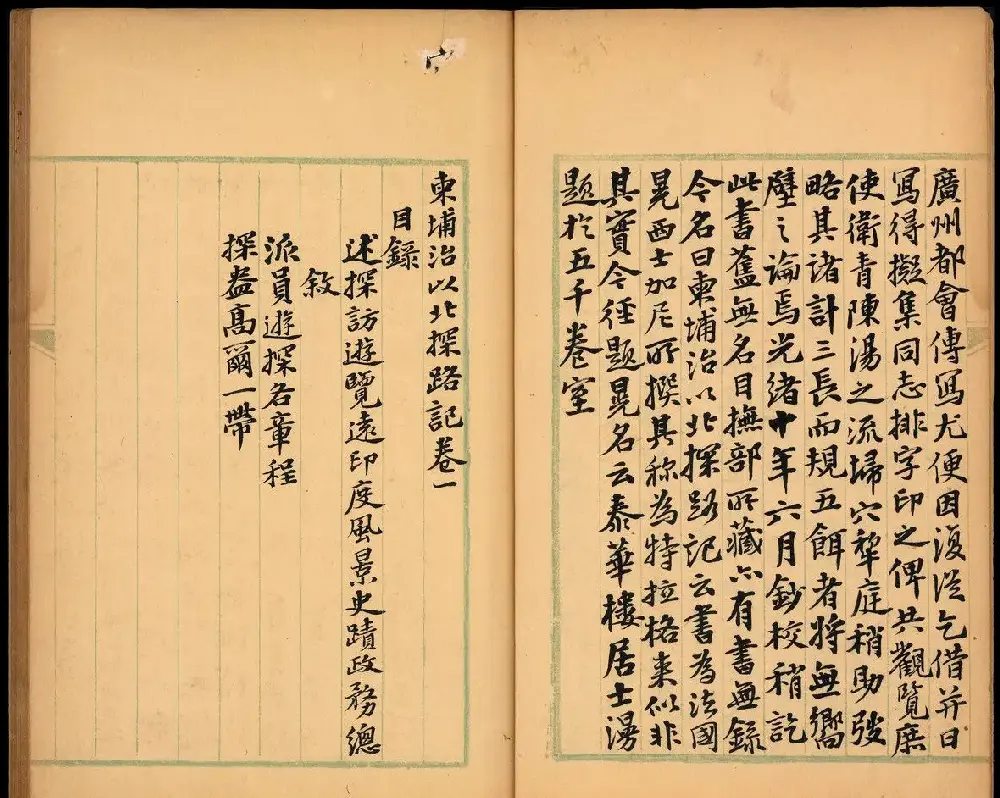 廣州都會傳寫尤便因復從乞借并日
寫得擬集同志排字印之俾共觀覽庶
使衛青陳湯之流埽穴犂庭稍助發
略其諸計三長而規五餌者將無嚮
壁之論焉光緒十年六月鈔校稍訖
此書舊無名目撫部所藏亦有書無錄
今名曰柬埔治以北探路記云書為法國
晃西士加尼所撰其称為特拉格来似非
其實今徑題晃名云泰華樓居士漫
題於五千卷室
柬埔治以北探路記卷一
目錄
述探訪遊覽遠印度風景史蹟政務總
敘
派員遊探各章程
探盎髙爾一帶